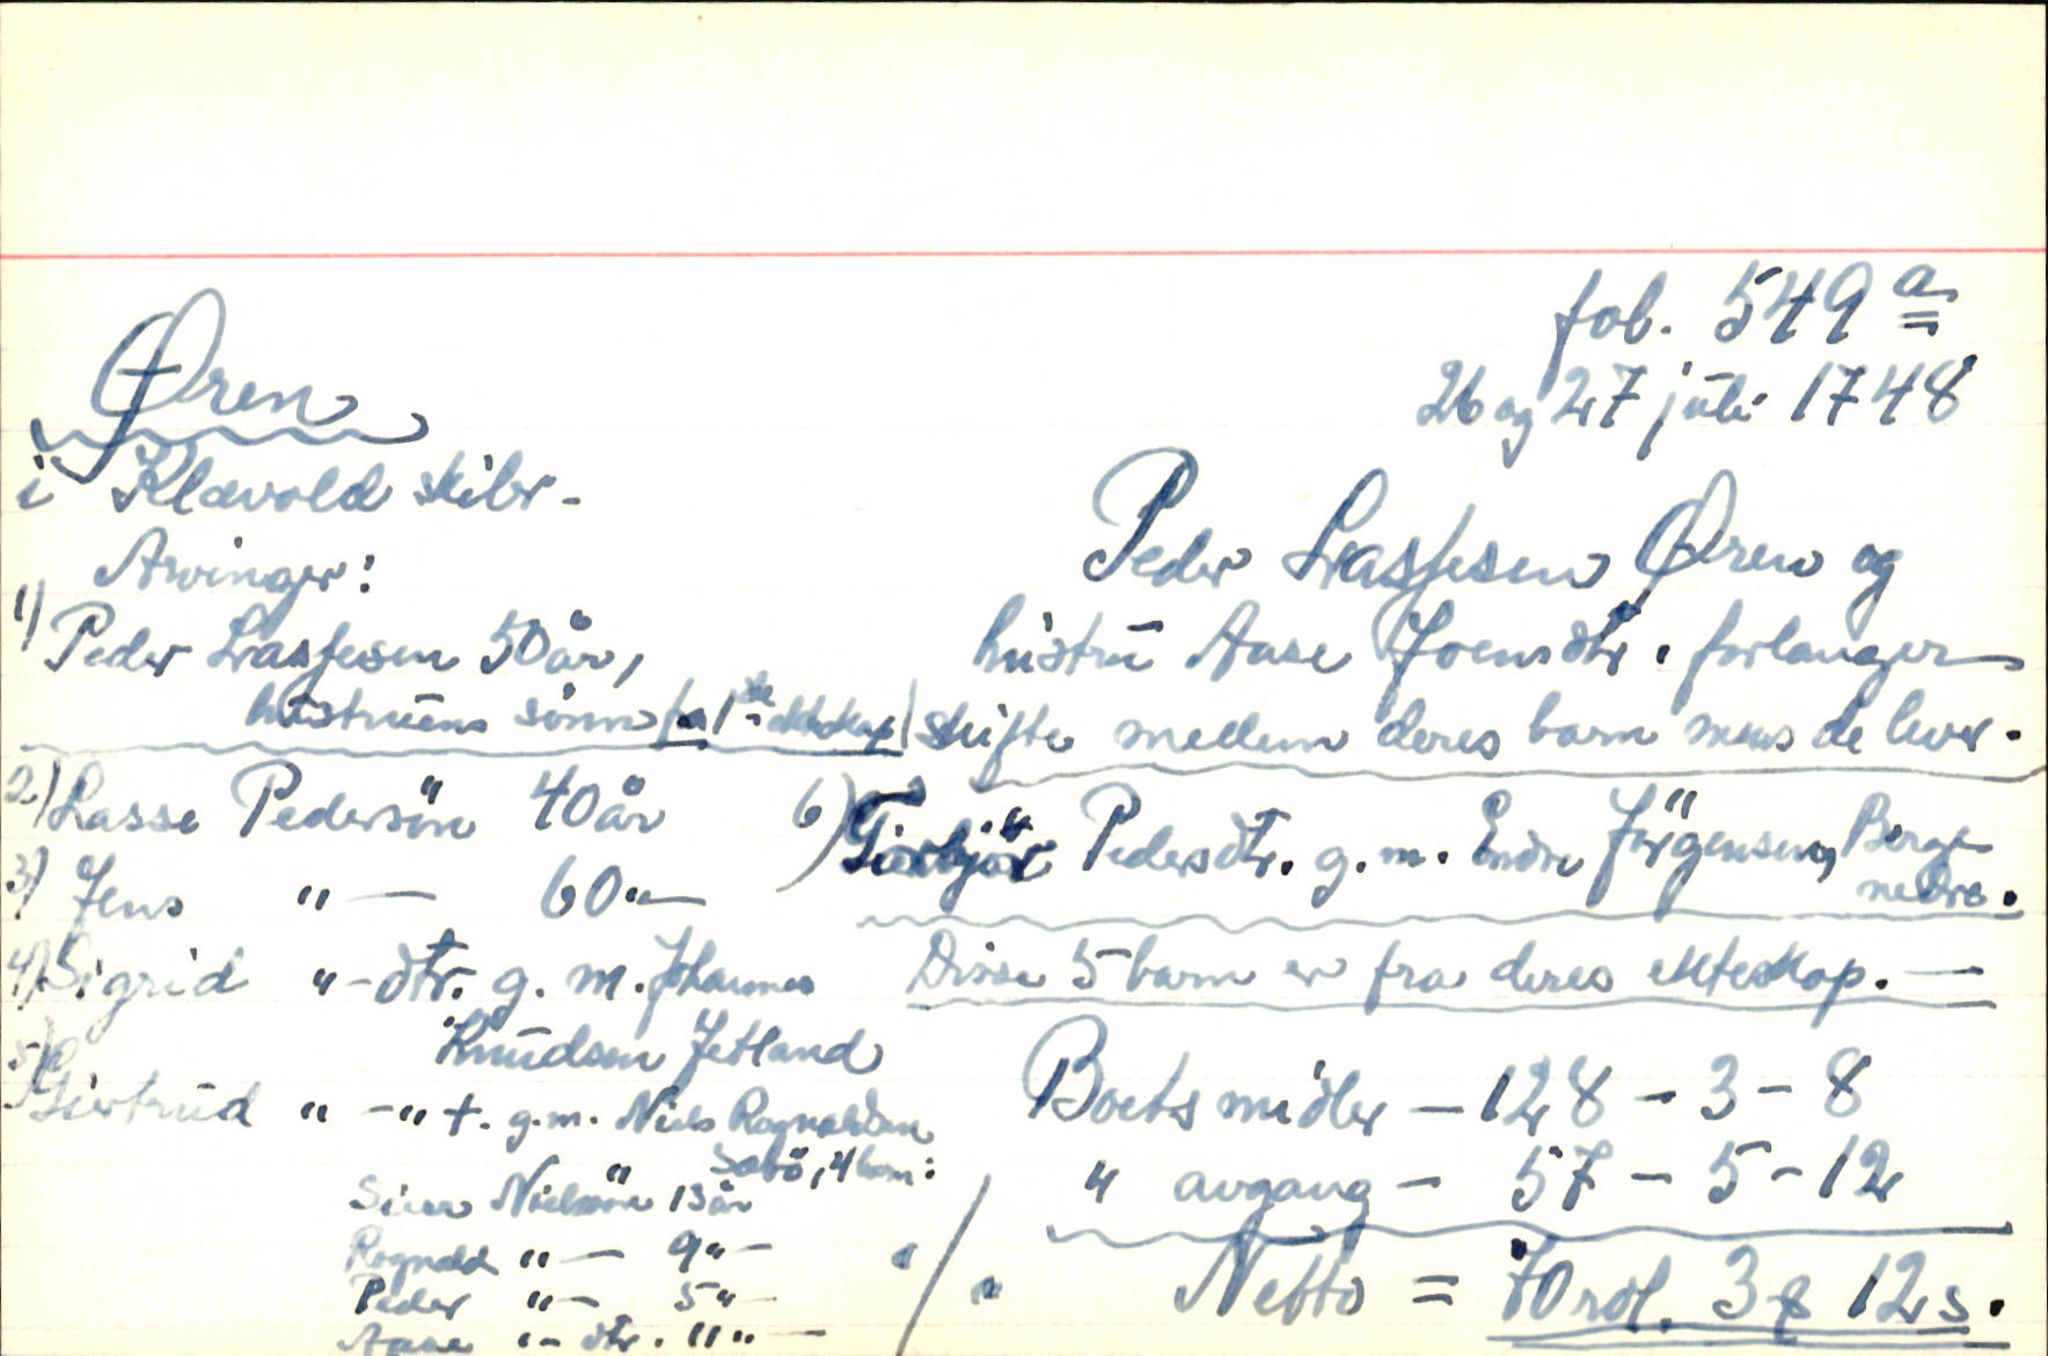 fol. 549 a
26 og 27 juli 1748
Øren
i Klævold skibr-
Peder Lassesen Øren og
hustru Aase Joensdtr. forlanger
skifte mellem deres barn mens de lever.
Arvinger:
1) Peder Lassesen 50 år,
hustruens sönn fra 1ste ekteskap
2) Lasse Pedersön 40 år
3) Jens " — 60 " —
4) Sigrid " - dtr. g. m. Johannes
Knudsen Jetland
5) Giertrud " - " †. g.m. Niels Rognaldsen
Sæbö, 4 barn:
Siver Nielssön 13 år
Rognald " — 9 " —
Peder " — 5 " —
Aase " - dtr. 11 " —
6) Torbjör Pedersdtr. g. m. Endre Jörgensen, Berge
nedre.
Disse 5 barn er fra deres ekteskap. —
Boets midler — 128 - 3 - 8
" avgang - 57 - 5 - 12
Netto = 70 rdl. 3 12 s.